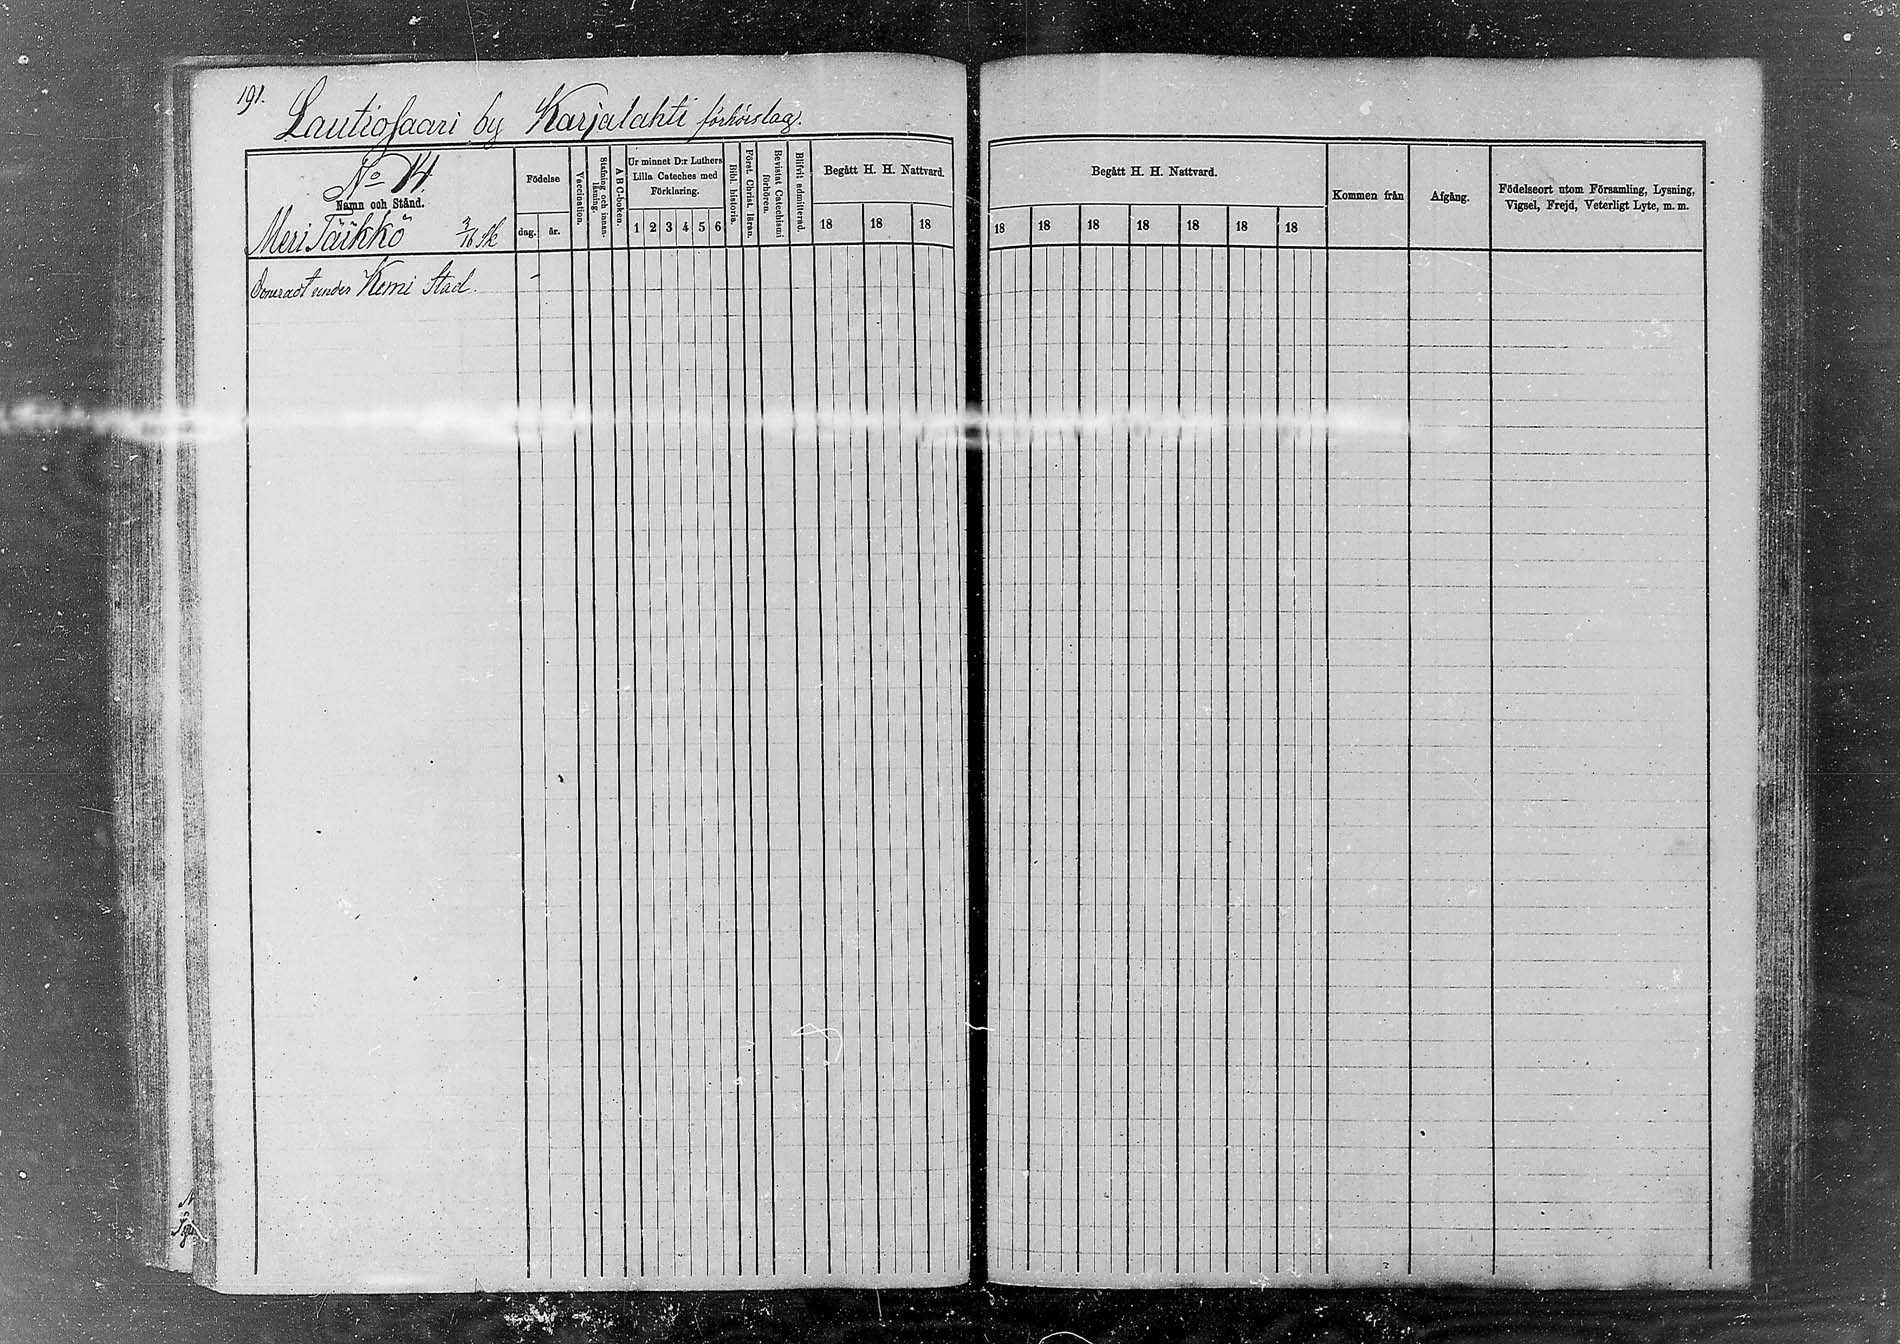 191.
Lautiosaari by Karjalahti förhörslag.
No 14.
Namn och Stånd.
Meri Täikkö 3/16 sk
Födelse
dag. år.
Vaccination.
Stafning och innanläsning.
A B C-boken.
Ur minnet D:r Luthers
Lilla Cateches med
Förklaring.
1 2 3 4 5 6
Bibl. historia.
Först. Christ. läran.
Bevistat Catechismi förhören.
Blifvit admitterad.
Begått H. H. Nattvard.
18 18 18
under Kemi Stad.
Begått H. H. Nattvard.
18 18 18 18 18 18 18
Kommen från
Afgång.
Födelseort utom Församling, Lysning,
Vigsel, Frejd, Veterligt Lyte, m. m.